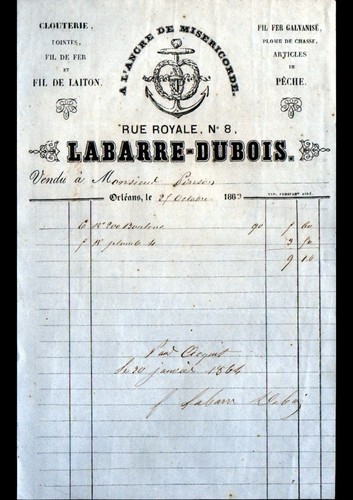 CLOUTERIE,
POINTES,
FIL DE FER
ET
FIL DE LAITON.
A L'ANCRE DE MISERICORDE.
FIL FER GALVANISÉ,
PLOMB DE CHASSE,
ARTICLES
DE
PÊCHE.
RUE ROYALE, No 8,
LABARRE-DUBOIS.
Vendu à Monsieur
Orléans, le 25 Octobre 1863
90
9 10
Pour Acquit
le 20 janvier 1864
Labarre Dubois